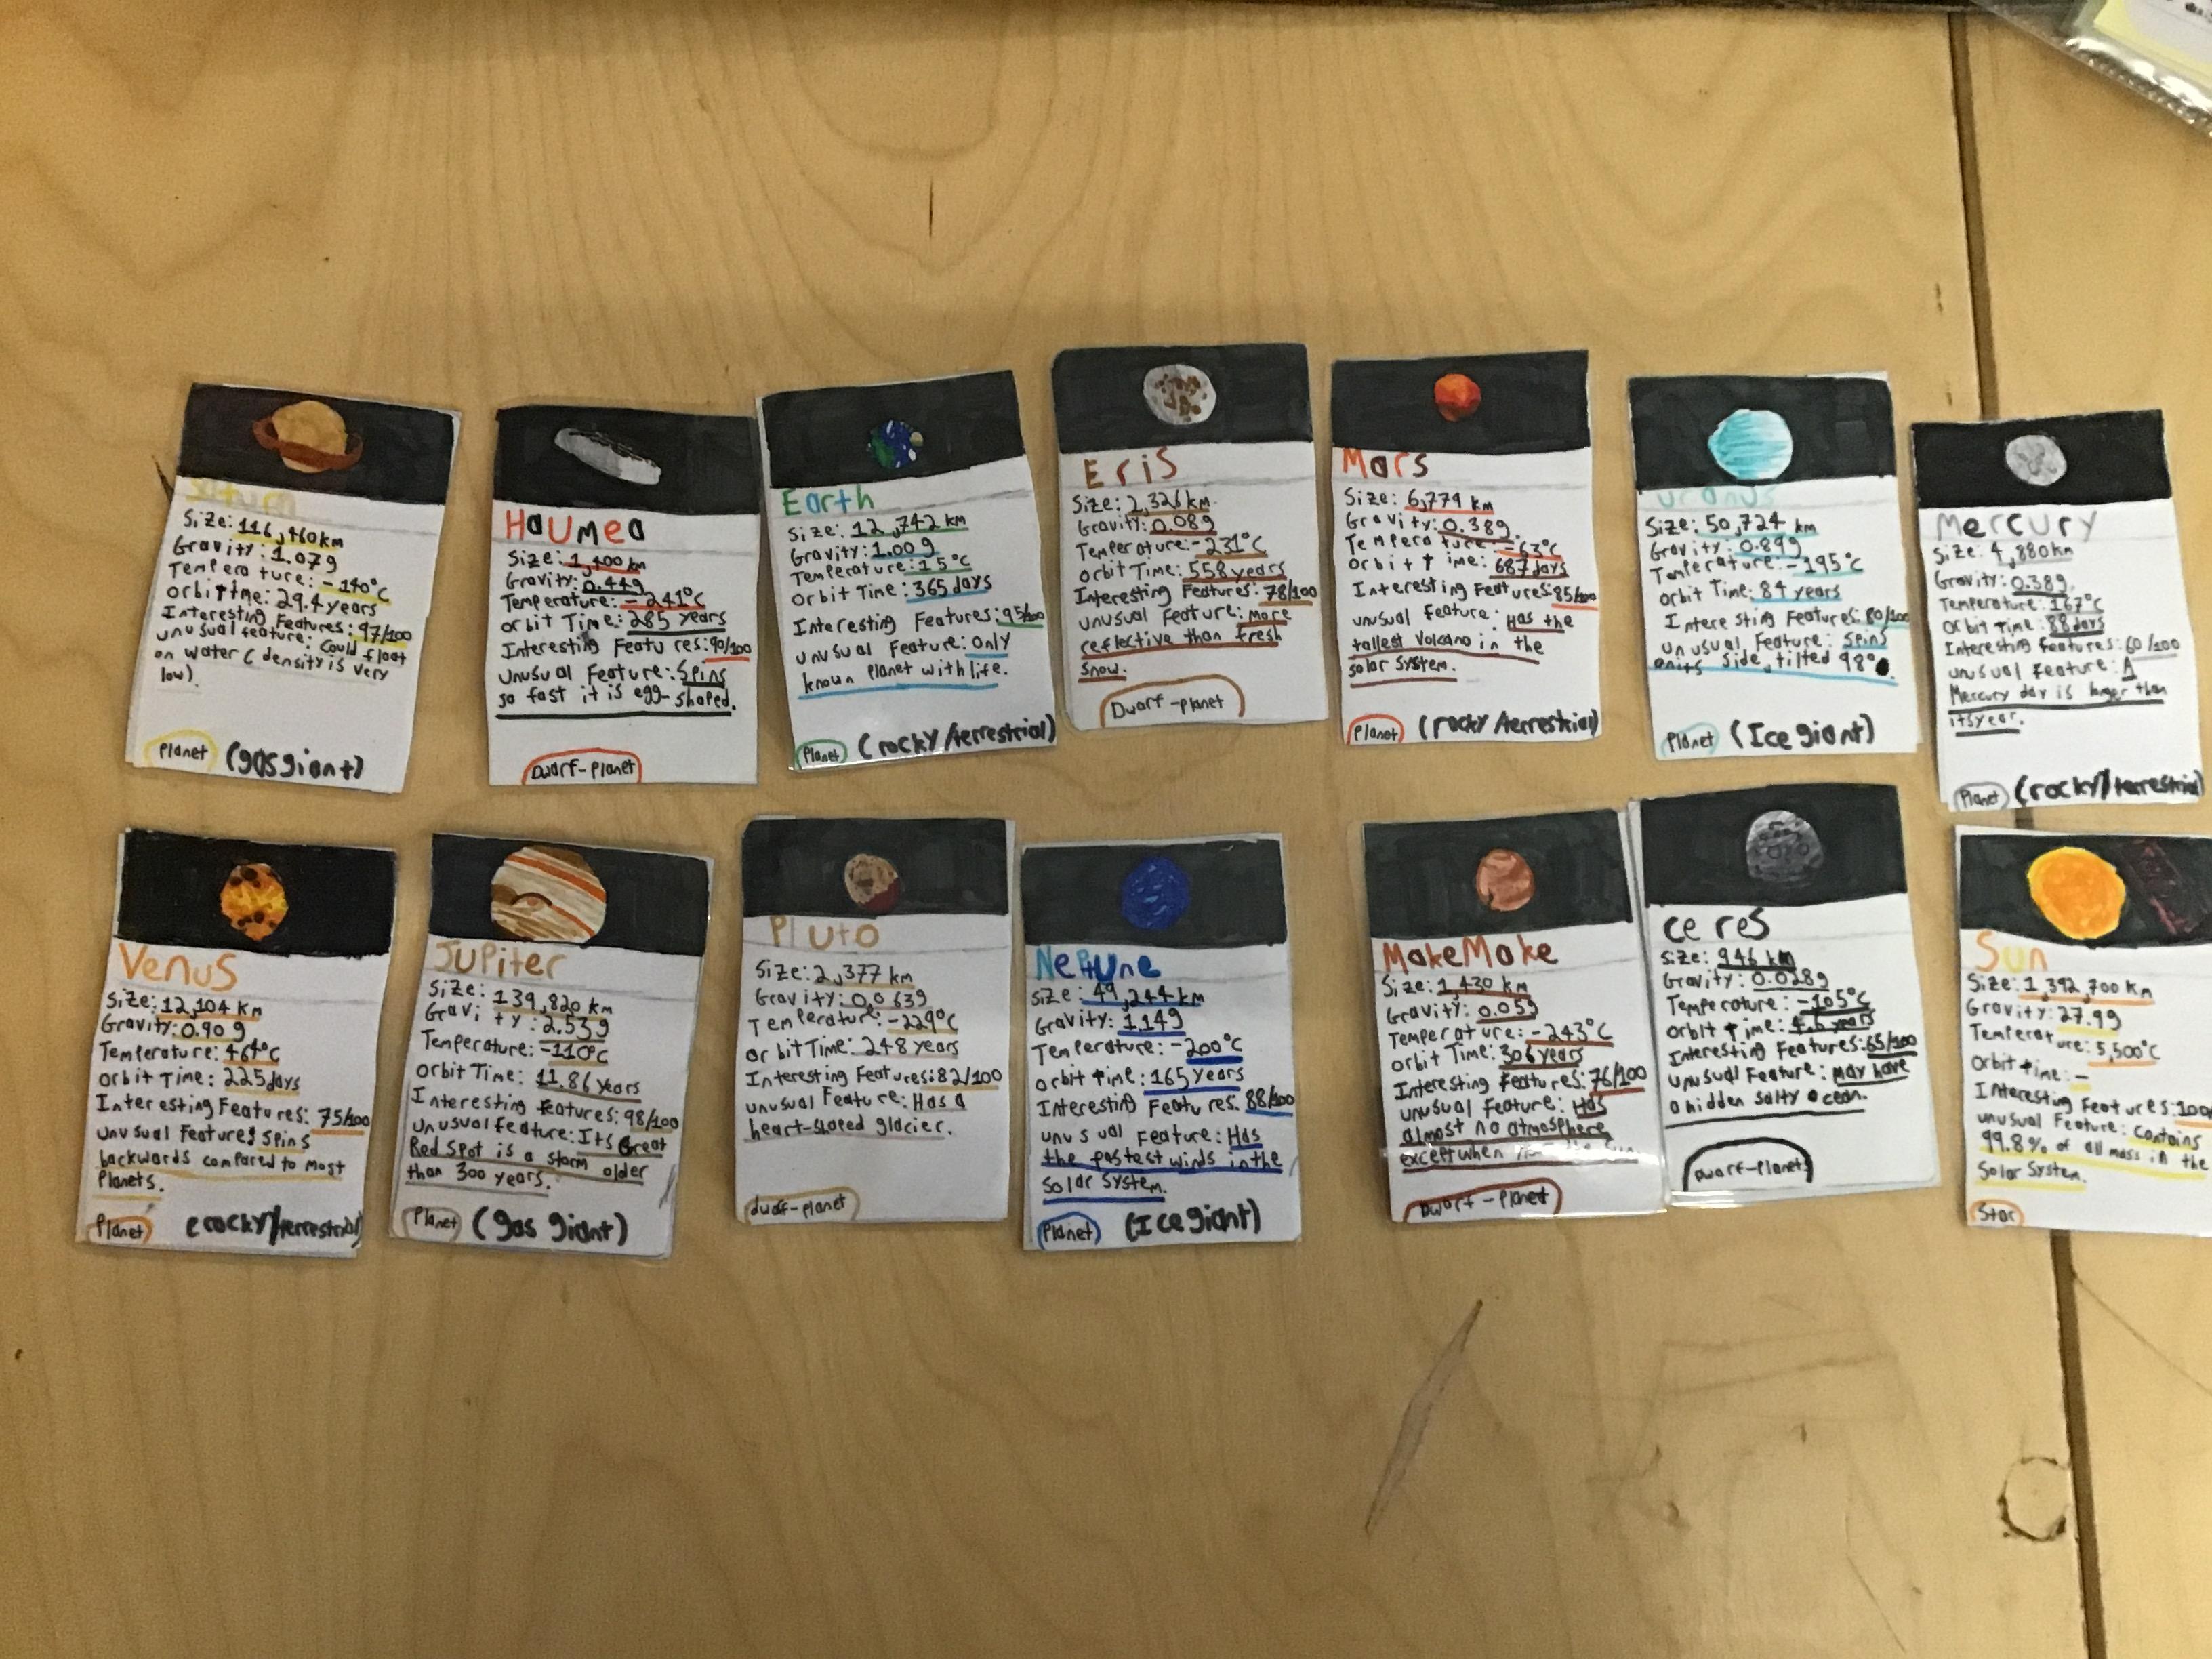 Saturn
Size: 116,460km
Gravity: 1.07g
Temperature: -140°C
orbit time: 29.4 years
Interesting Features: 97/100
unusual feature: Could float
on water ( density is very
low).
Planet (gas giant)
Haumea
Size: 1,400 km
Gravity: 0.44g
Temperature: -241°C
orbit Time: 285 years
Interesting Features: 90/100
Unusual Feature: Spins
so fast it is egg-shaped.
Dwarf-Planet
Earth
Size: 12,742 km
Gravity: 1.00g
Temperature: 15°C
Orbit Time: 365 days
Interesting Features: 95/100
unusual Feature: Only
known Planet with life.
Planet (rocky/terrestrial)
Eris
Size: 2,326km
Gravity: 0.08g
Temperature: -231°C
Orbit Time: 558 years
Interesting Features: 78/100
unusual Feature: more
reflective than fresh
snow.
Dwarf-planet
Mars
Size: 6,779 km
Gravity: 0.38g
Temperature: -63°C
orbit time: 687 days
Interesting Features: 85/100
unusual feature: Has the
tallest Volcano in the
solar System.
Planet (rocky/terrestrial)
uranus
Size: 50,724 km
Gravity: 0.89g
Temperature: -195°C
orbit Time: 84 years
Interesting Features: 80/100
unusual Feature: Spins
on its side, tilted 98°
Planet (Ice giant)
Mercury
Size: 4,880km
Gravity: 0.38g
Temperature: 167°C
Orbit Time: 88 days
Interesting Features: 60/100
unusual Feature: A
Mercury day is longer than
its year.
Planet (rocky/terrestrial)
Venus
Size: 12,104 km
Gravity: 0.90g
Temperature: 464°C
Orbit Time: 225 days
Interesting Features: 75/100
unusual Feature: Spins
backwards compared to most
Planets.
Planet (rocky/terrestrial)
Jupiter
Size: 139,820 km
Gravity: 2.53g
Temperature: -110°C
Orbit Time: 11.86 years
Interesting features: 98/100
unusual feature: Its Great
Red Spot is a storm older
than 300 years.
Planet (gas giant)
Pluto
Size: 2,377 km
Gravity: 0,063g
Temperature: -229°C
orbit Time: 248 years
Interesting Features: 82/100
unusual Feature: Has a
heart-shaped glacier.
dwarf-planet
Neptune
Size: 49,244 km
Gravity: 1.14g
Temperature: -200°C
orbit time: 165 years
Interesting Features. 88/100
unusual Feature: Has
the fastest winds in the
Solar System.
Planet (Ice giant)
MakeMake
Size: 1,430 km
Gravity: 0.05g
Temperature: -243°C
Orbit Time: 306 years
Interesting Features: 76/100
unusual Feature: Has
almost no atmosphere
except when
Dwarf-Planet
ceres
Size: 946 km
Gravity: 0.028g
Temperature: -105°C
orbit time: 4.6 years
Interesting Features: 65/100
unusual Feature: may have
a hidden salty ocean.
Dwarf-Planet
Sun
Size: 1,392,700 km
Gravity: 27.9g
Temperature: 5,500°C
Orbit time: -
Interesting Features: 100/
unusual Feature: Contains
99.8% of all mass in the
Solar System.
Star